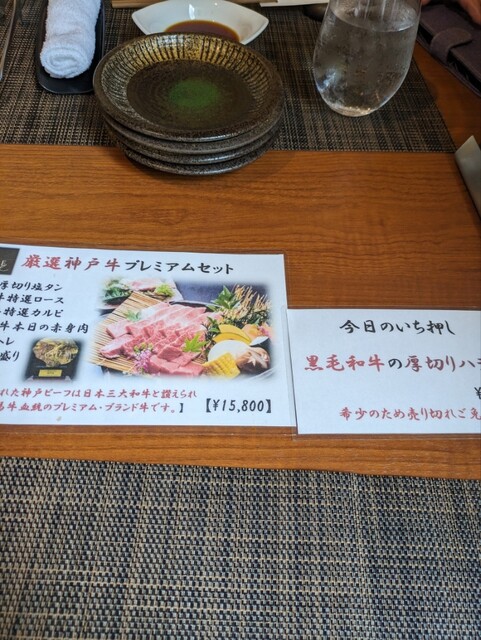 厳選神戸牛プレミアムセット
厚切り塩タン
牛特選ロース
特選カルビ
牛本日の赤身肉
ヘレ
盛り
れた神戸ビーフは日本三大和牛と讃えられ
馬牛血統のプレミアム・ブランド牛です。】
【¥15,800】
今日のいち押し
黒毛和牛の厚切りハ
¥
希少のため売り切れご免